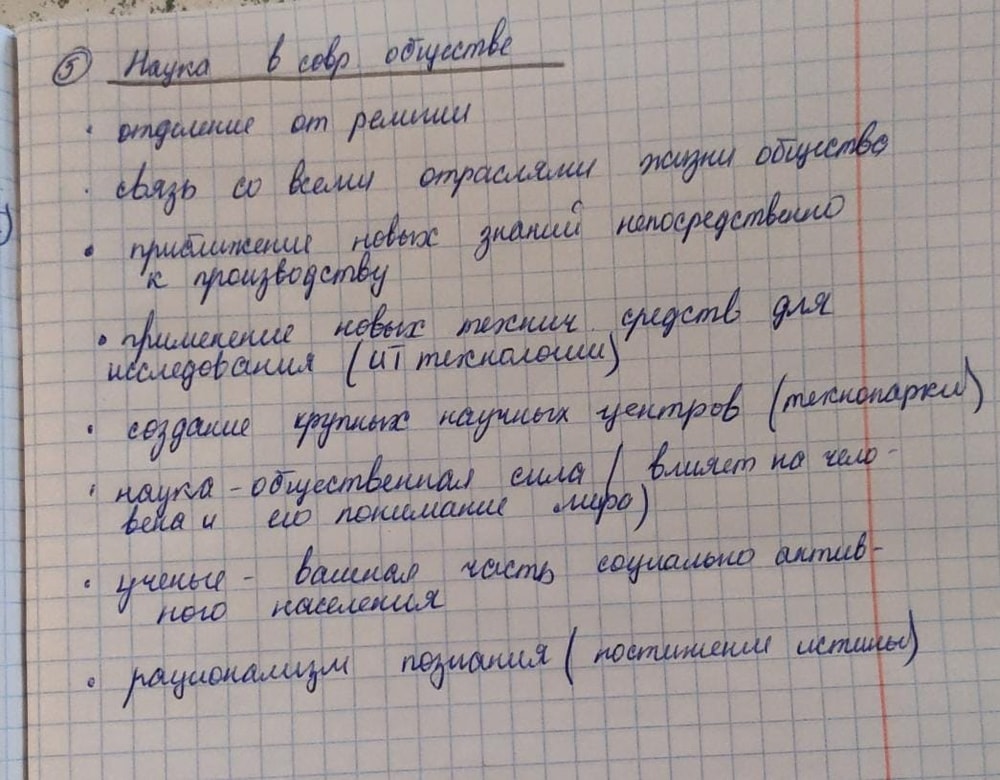 ⑤ Наука в совр обществе
· отделение от религии
· связь со всеми отраслями жизни общества
· приближение новых знаний непосредственно
к производству
· применение новых технич. средств для
исследования (ИТ технологии)
· создание крупных научных центров (технопарки)
· наука - общественная сила (влияет на чело-
века и его понимание мира)
· ученые - важная часть социально актив-
ного населения
· рационализм познания (постижение истины)